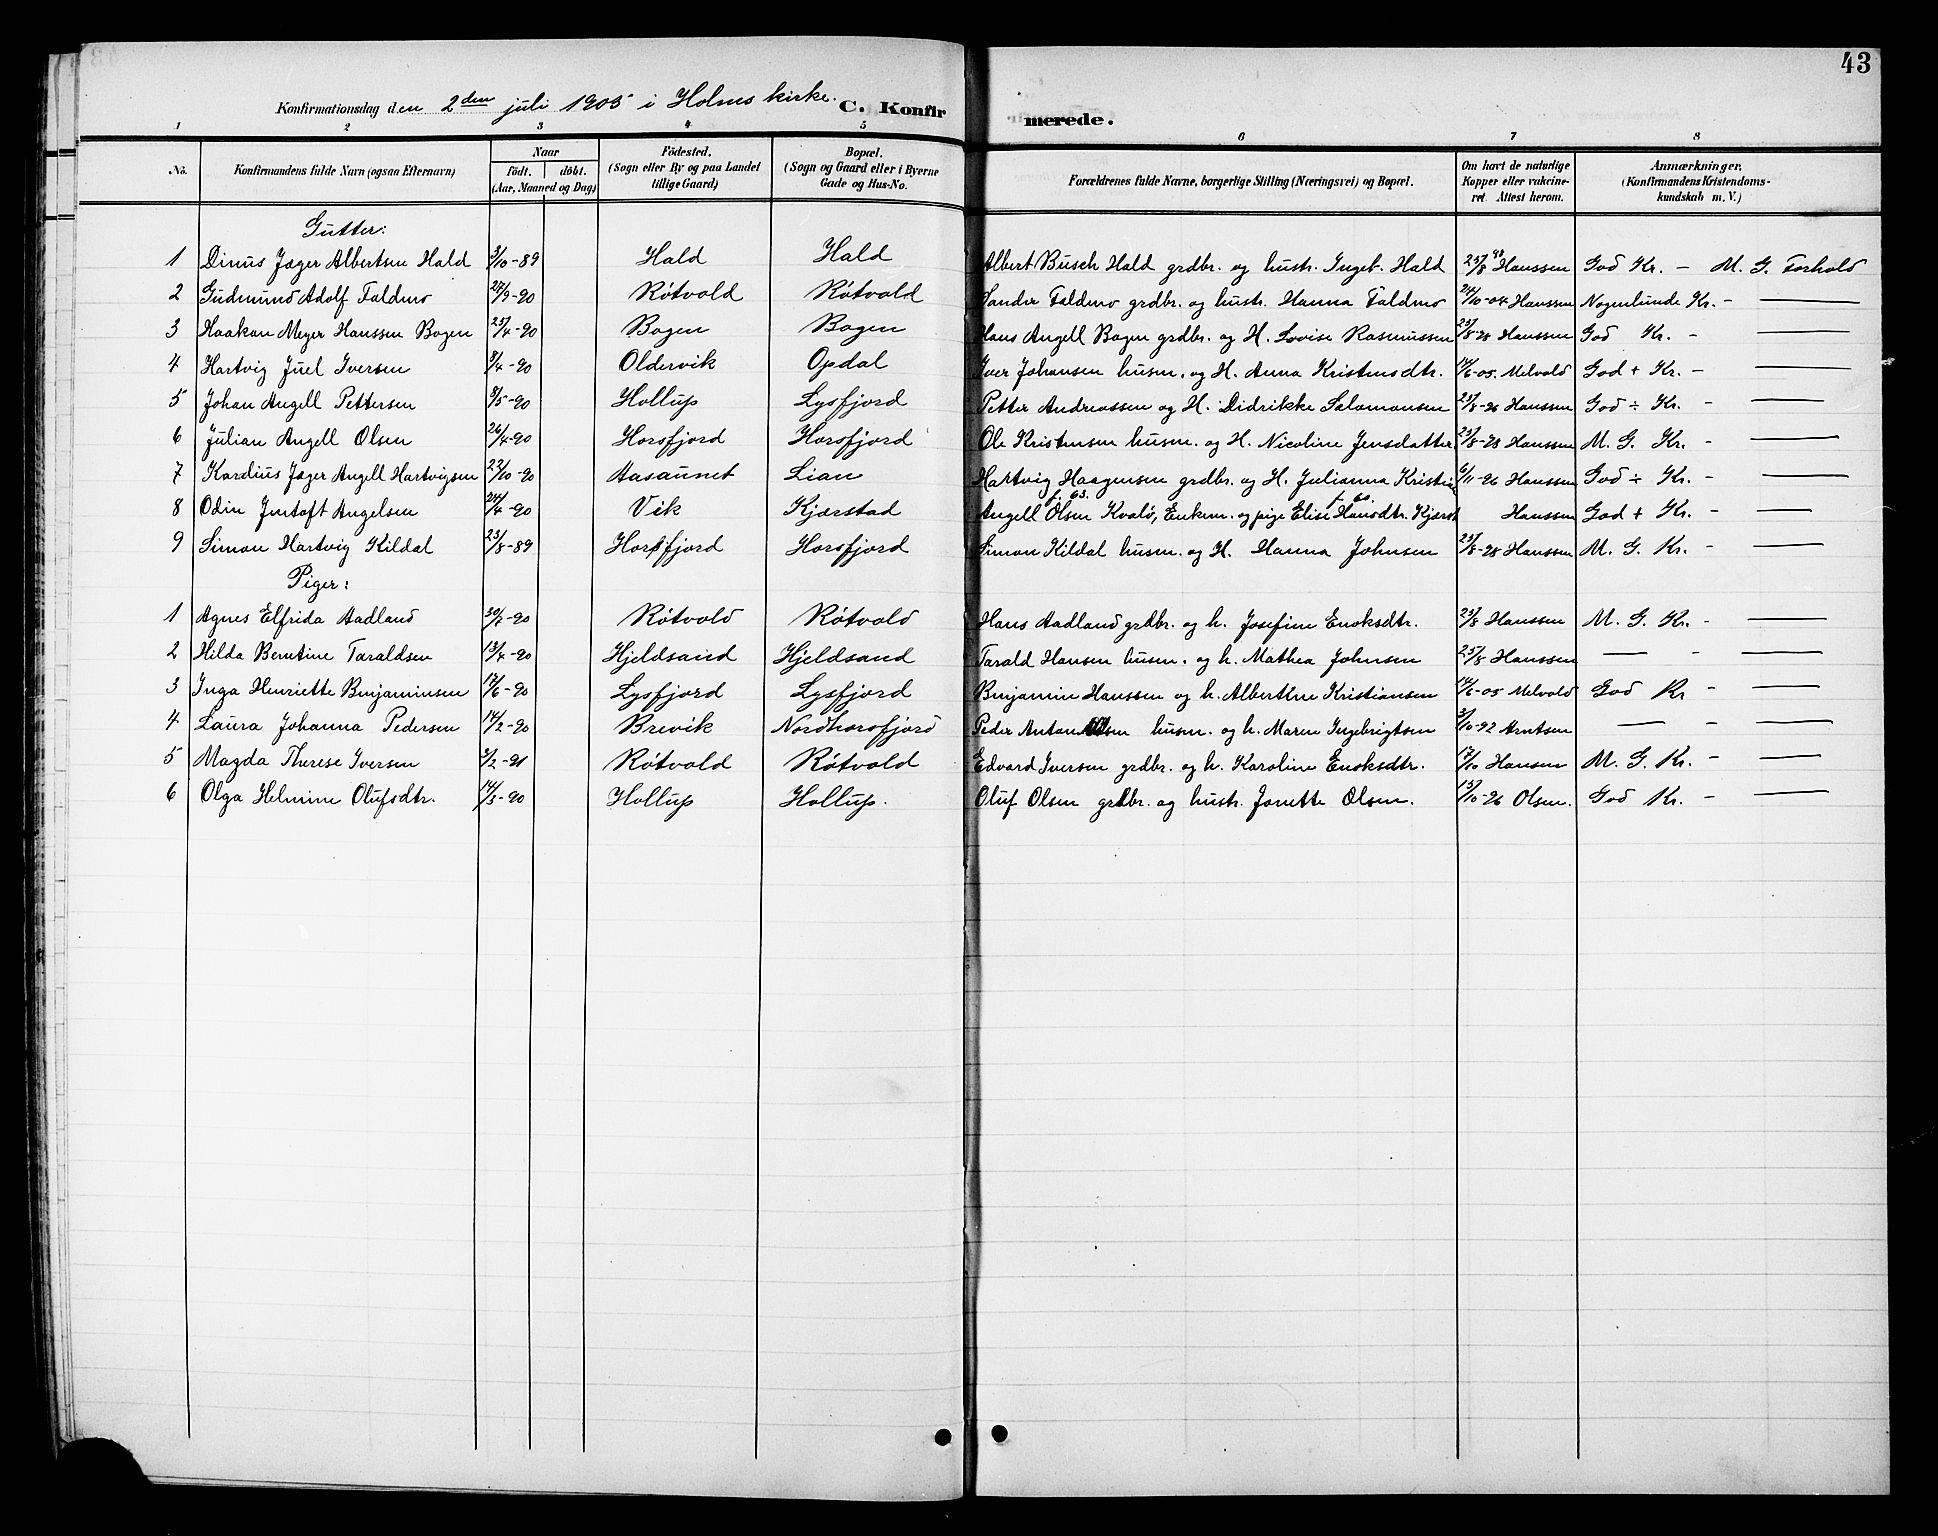 43
Konfirmationsdag den 2den juli 1905 i Holms kirke. C. Konfirmerede.
1 2 3 4 5 6 7 8
No. Konfirmandens fulde Navn (ogsaa Efternavn) Naar födt. döbt. (Aar, Maaned og Dag) Födested. (Sogn eller By og paa Landet tillige Gaard) Bopæl. (Sogn og Gaard eller i Byerne Gade og Hus-No. Forældrenes fulde Navne, borgerlige Stilling (Næringsvei) og Bopæl. Om havt de naturlige Kopper eller vakcineret Attest herom. Anmærkninger, (Konfirmandens Kristendomskundskab m. V.)
Gutter:
1 Dinus Jæger Albertsen Hald 3/10-89 Hald Hald Albert Busch Hald grdbr. og hustr. Ingeb. Hald 25/8 98 Hanssen God Kr. - M. G. Forhold
2 Gudmund Adolf Faldmo 27/9-90 Rötvold Rötvold Sander Faldmo grdbr. og hustr. Hanna Faldmo 24/10-04 Hanssen Nogenlunde Kr. - —
3 Haakan Meyer Hanssen Bogen 25/4-90 Bogen Bogen Hans Angell Bogen grdbr. og H. Lovise Rasmussen 23/8-98 Hanssen God Kr. - —
4 Hartvig Juel Iversen 3/4-90 Oldervik Opdal Iver Johansen husm. og H. Anna Kristensdtr. 14/6-05. Melvold God + Kr. - —
5 Johan Angell Pettersen 9/5-90 Hollup Lysfjord Petter Andreassen og H. Didrikke Salomonsen 25/8-96 Hanssen God ÷ Kr. - —
6 Julian Angell Olsen 26/4-90 Horsfjord Horsfjord Ole Kristensen husm. og H. Nicoline Jensdatter 23/8-98 Hanssen M. G. Kr. - —
7 Kardius Jæger Angell Hartvigsen 22/10-90 Aasaunet Lian Hartvig Haagensen grdbr. og H. Julianna 6/11-96 Hanssen God ÷ Kr. - —
8 Odin Jentoft Angelsen 24/4-90 Vik Kjærstad Angell Olsen f. 63. Kvalö, Enkem. og pige Elise Hansdtr. f. 60. Hanssen God + Kr. - —
9 Simon Hartvig Kildal 23/8-89 Horsfjord Horsfjord Simon Kildal husm. og H. Hanna Johnsen 23/8-98 Hanssen M. G. Kr. - —
Piger:
1 Agnes Elfrida Aadland 30/7-90 Rötvold Rötvold Hans Aadland grdbr. og h. Josefine Enoksdtr. 23/8 Hanssen M. G. Kr. - —
2 Hilda Berntine Taraldsen 13/4-90 Hjeldsand Hjeldsand Tarald Hansen husm. og h. Mathea Johnsen 25/8 Hanssen — - —
3 Inga Henriette Benjaminsen 17/6-90 Lysfjord Lysfjord Benjamin Hanssen og h. Alberthne Kristiansen 14/6-05 Melvold God Kr - —
4 Laura Johanna Pedersen 14/2-90 Brevik Nordhorsfjord Peder Anton Olsen husm. og h. Maren Ingebrigtsen 3/10-92 Arntsen — - —
5 Magda Therese Iversen 3/2-91 Rötvold Rötvold Edvard Iversen grdbr. og h. Karoline Enoksdtr. 17/10 Hansen M. G. Kr. - —
6 Olga Helmine Olufsdtr. 14/3-90 Hollup Hollup. Oluf Olsen grdbr. og hustr. Jonette Olsen. 13/10-96 Olsen. God Kr. - —